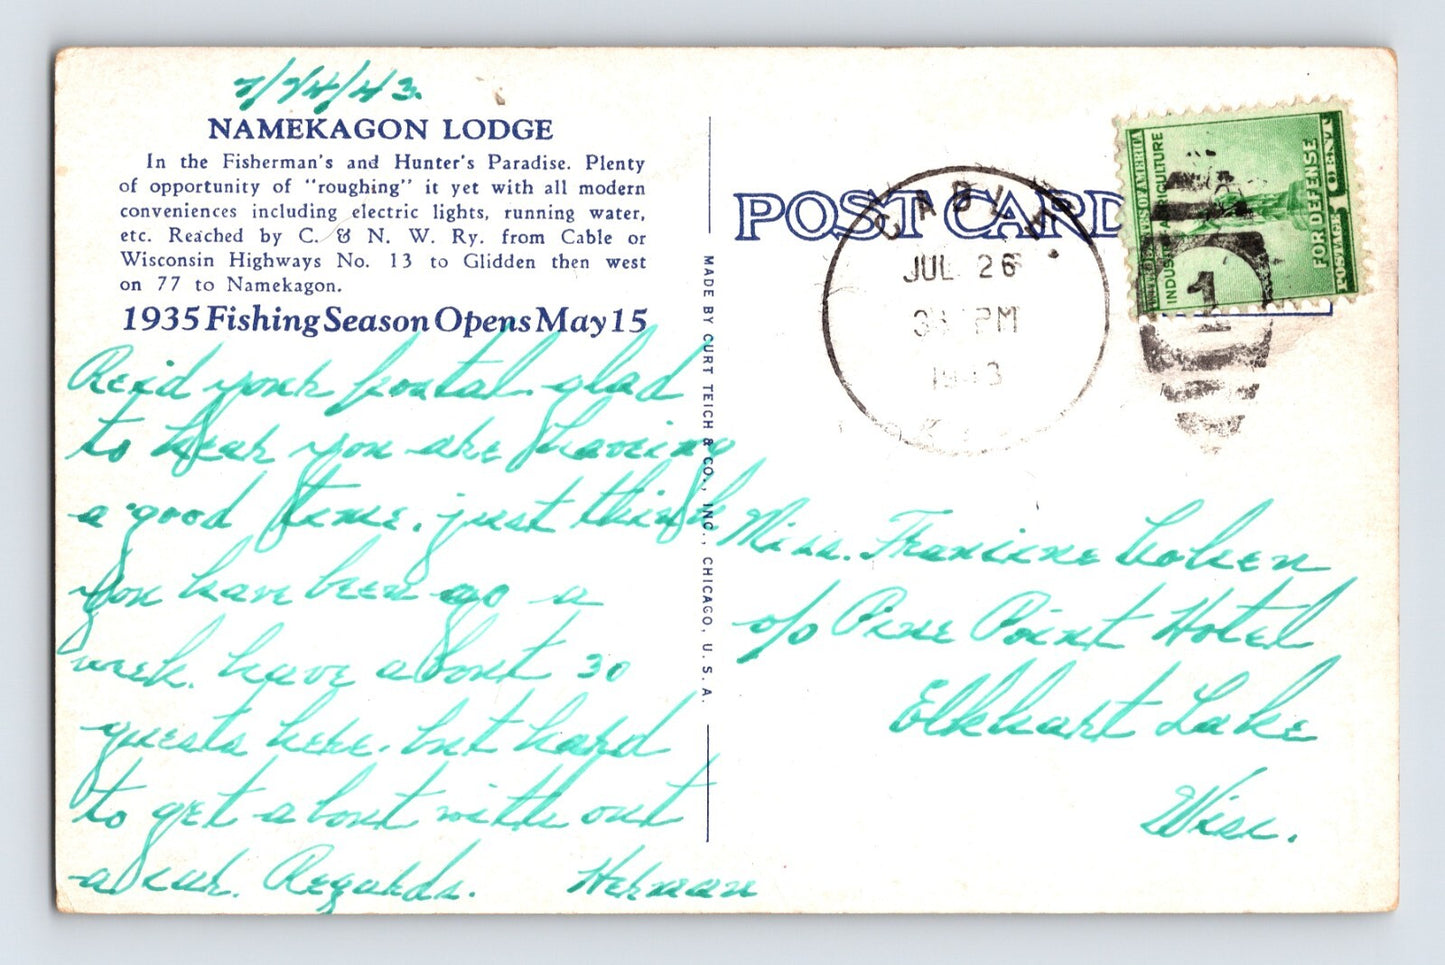 7/24/43.
NAMEKAGON LODGE
In the Fisherman's and Hunter's Paradise. Plenty
of opportunity of "roughing" it yet with all modern
conveniences including electric lights, running water,
etc. Reached by C. & N. W. Ry. from Cable or
Wisconsin Highways No. 13 to Glidden then west
on 77 to Namekagon.
1935 Fishing Season Opens May 15
Recid your postal. glad
to hear you are having
a good time. just think
you have been ago a
week. have about 30
guests here. but hard
to get about with out
a car. Regards. Herman
MADE BY CURT TEICH & CO., INC., CHICAGO, U. S. A.
POST CARD
CABLE
JUL 26
PM
1943
UNITED STATES OF AMERICA
INDUSTRY AGRICULTURE
FOR DEFENSE
POSTAGE 1 CENT
1
Miss. Francine Cohen
c/o Pine Point Hotel
Elkhart Lake
Wisc.